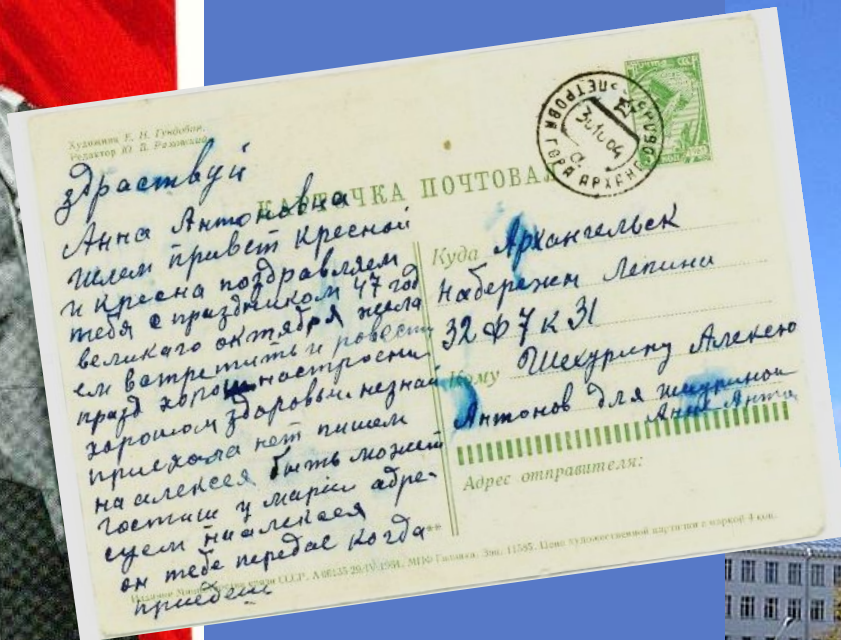 Художник Е. Н. Гундобин.
Редактор Ю. В. Разовский
КАРТОЧКА ПОЧТОВАЯ
здраствуй
Анна Антоновна
шлем привет кресной
и кресна поздравляем
тебя с праздником 47 год
великаго октября жела
ем встретить и провести
празд хорош настроени
хорошом здоровьи незнай
приехала нет пишем
на алексея быть может
гостиш у марии адре-
суем на алексея
он тебе передас когда
приедеш
ПЕТРОВА ГОРА АРХАНГ
30 10 64
Куда Архангельск
Набережен Ленина
32 ф 7 к 31
Кому Шекурину Алексею
Антонов для шкуриной
Анне Анто
Адрес отправителя:
Издание Министерства связи СССР. А 00155 20/IV-1964. МПФ Гознака. Зак. 11585. Цена художественной карточки с маркой 4 коп.